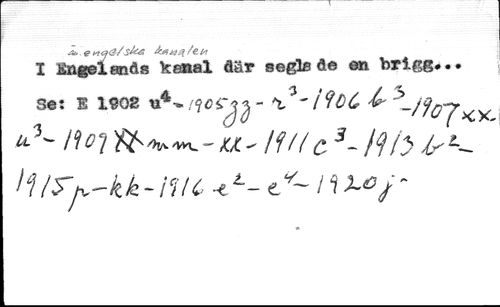 äv. engelska kanalen
I Engelands kanal där seglade en brigg...
Se: E 1902 u⁴-1905zz-r³-1906 b³-1907xx-
u³-1909 XX mm-xx-1911 c³-1913 b²-
1915 p-kk-1916 e²-e⁴-1920j-